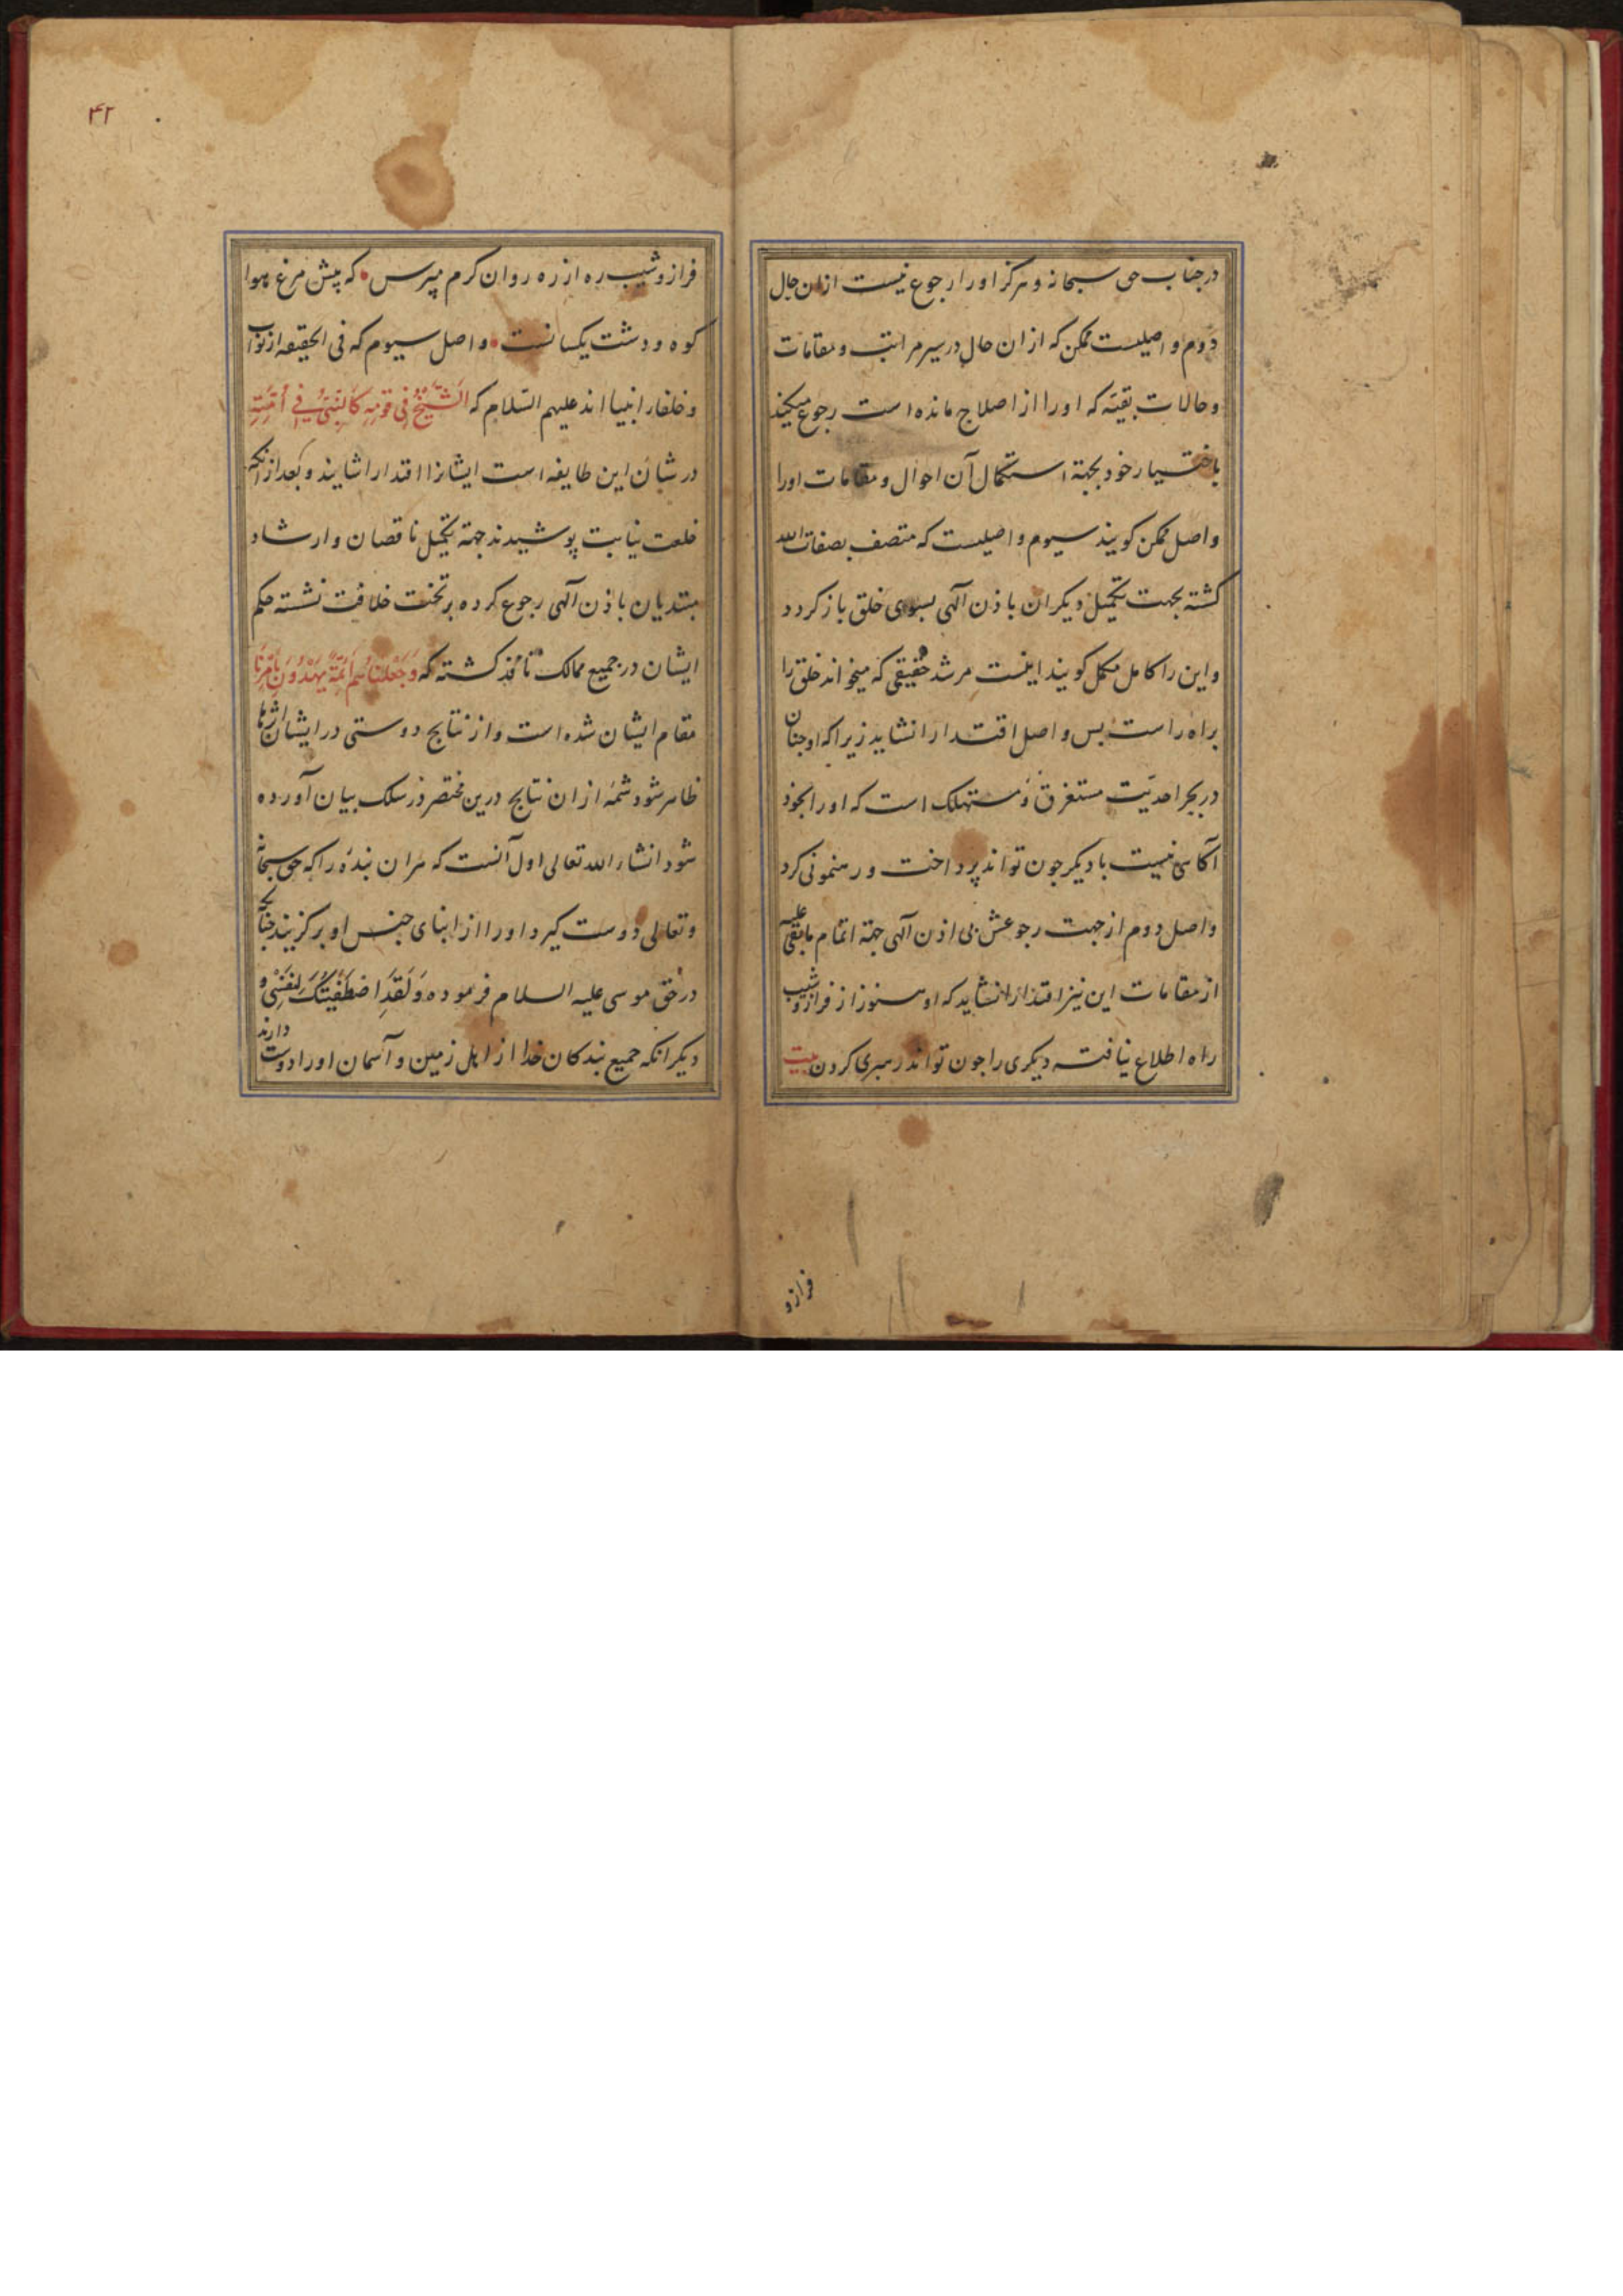 در جناب حق سبحانه و هرکز اورا رجوع نیست ازان حال
دوم واصلیست ممکن که ازان حال در سیر مراتب و مقامات
وحالات بقیّه که اورا از اصلاح مانده است رجوع میکند
باختیار خود بجهة استکمال آن احوال و مقامات اورا
واصل ممکن کویند سیوم واصلیست که متصف بصفات الله
کشته بجهت تکمیل دیکران باذن آلهی بسوی خلق باز کردد
و این را کامل مکمل کویند اینست مرشد حقیقی که میخواند خلق را
براه راست بس واصل اقتدارا نشاید زیراکه او جنان
در بحر احدیّت مستغرق و مستهلک است که اورا بخود
آکاهی نیست با دیکر جون تواند پرداخت و رهنمونی کرد
واصل دوم از جهت رجوعش بی اذن آلهی جهة اتمام مابقی علیه
از مقامات این نیز اقتدارا نشاید که او هنوز از فراز و شیب
راه اطلاع نیافته دیکری را جون تواند رهبری کردن بیت
فراز و
۴۲
فراز و شیب ره از ره روان کرم مپرس • که پیش مرغ هوا
کوه و دشت یکسانست • و اصل سیوم که فی الحقیقه از نواب
و خلفاء انبیا اند علیهم السّلام که الشَّیْخُ فی قَومِهِ کَالنَّبیِّ فی اُمَّتِهِ
در شأن این طایفه است ایشانرا اقتدارا شایند و بعد ازانکه
خلعت نیابت پوشیدند جهة تکمیل ناقصان و ارشاد
مبتدیان باذن آلهی رجوع کرده بر تخت خلافت نشسته حکم
ایشان در جمیع ممالک نافذ کشته که وَجَعَلْنَاهُم اَئمّةً یَهْدُونَ بِاَمْرِنَا
مقام ایشان شده است و از نتایج دوستی در ایشان اثرها
ظاهر شود شمّه ازان نتایج درین مختصر در سلک بیان آورده
شود انشاء الله تعالی اول آنست که هران بندهٔ را که حق سبحانه
و تعالی دوست کیرد اورا از ابنای جنس او برکزیند جنانکه
در حق موسی علیه السلام فرموده وَلَقَدِ اصْطَفَیْتُکَ لِنَفْسِی و
دیکر انکه جمیع بندکان خدا از اهل زمین و آسمان اورا دوست دارند